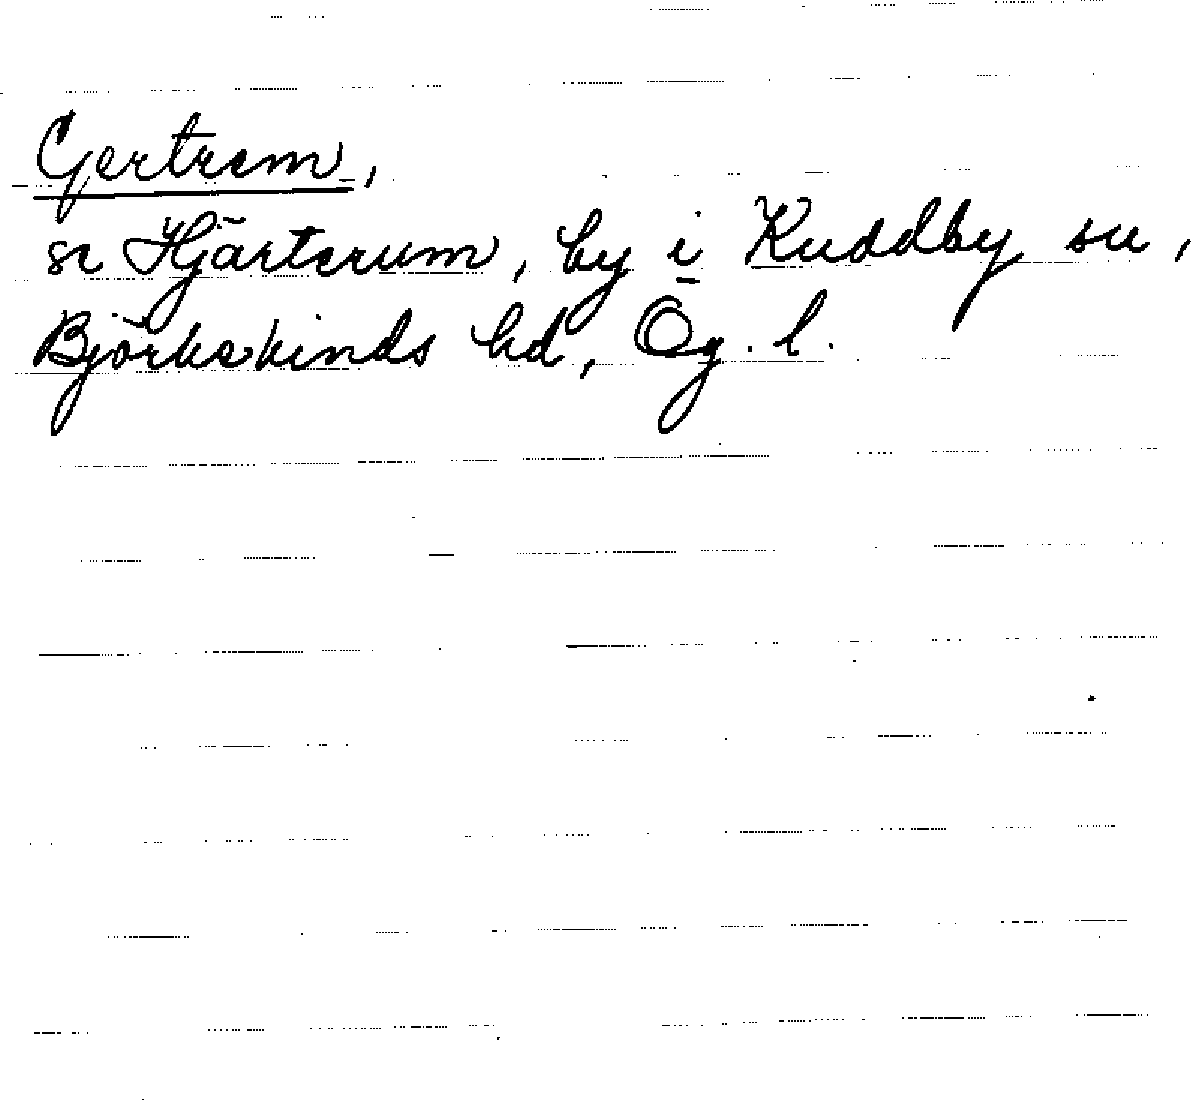 Gertrem,
se Hjärterum, by i Kuddby sn,
Björkekinds hd, Ög. l.